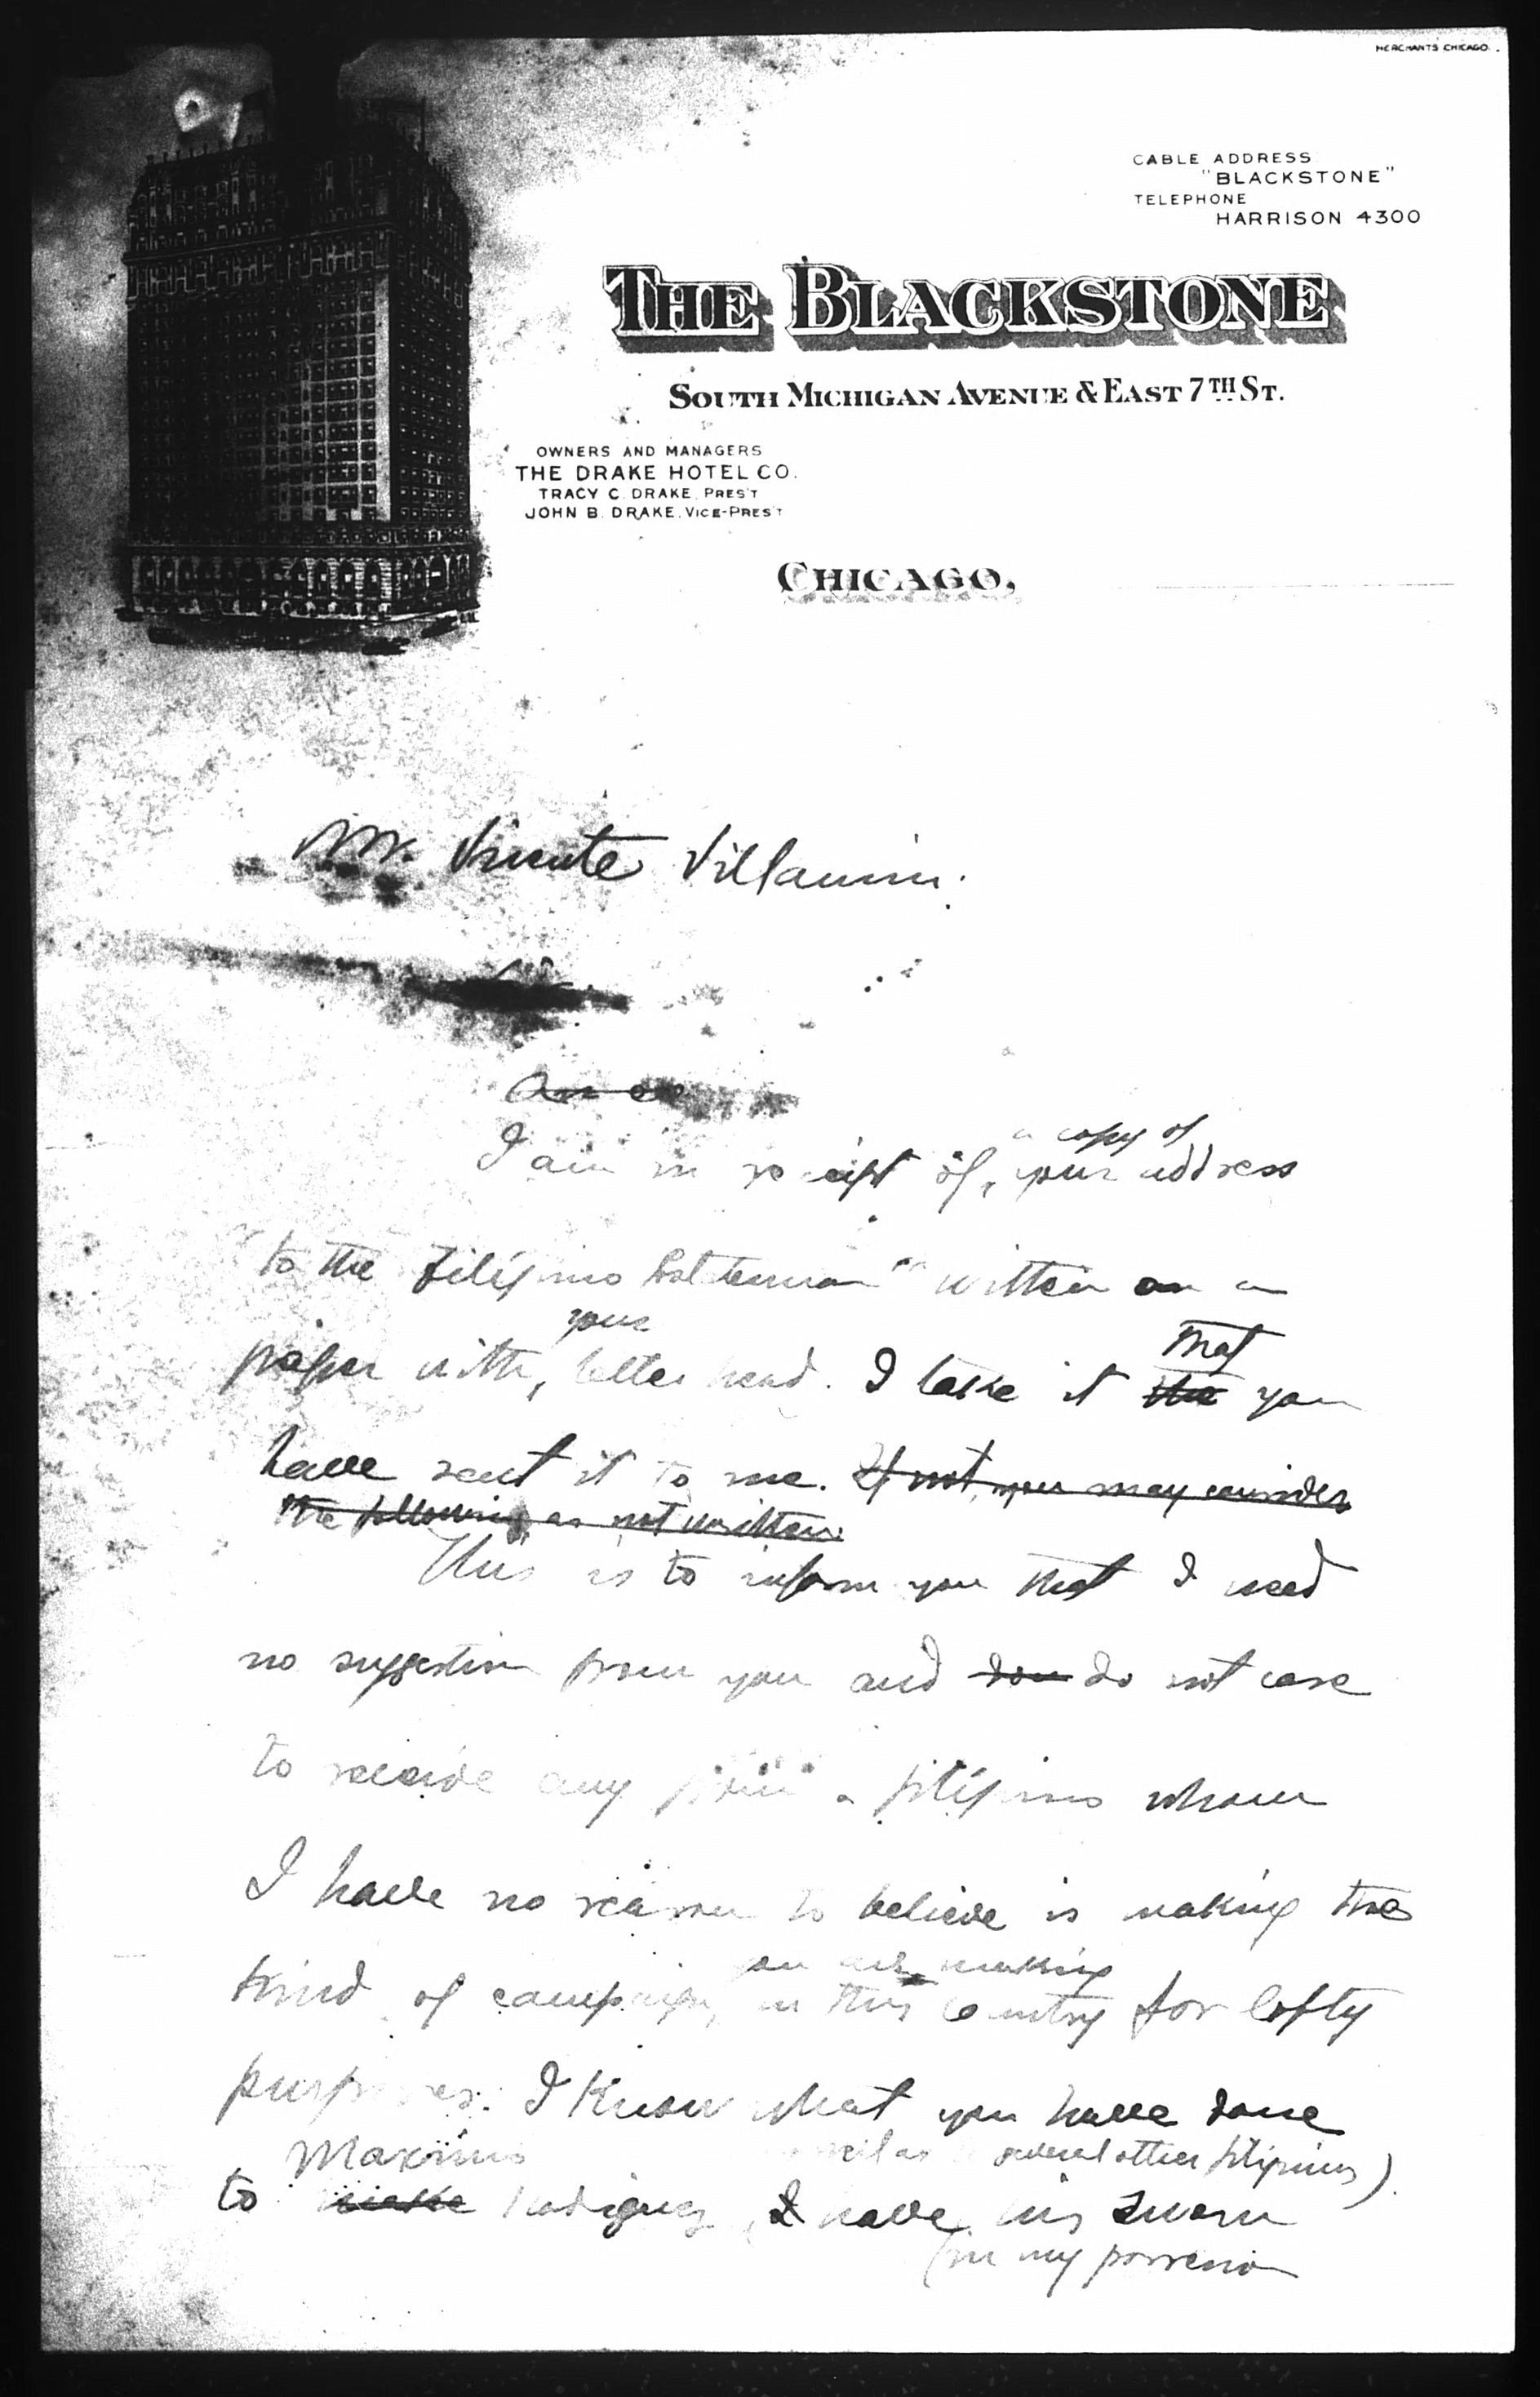 MERCHANTS CHICAGO.
CABLE ADDRESS
"BLACKSTONE"
TELEPHONE
HARRISON 4300
THE BLACKSTONE
SOUTH MICHIGAN AVENUE & EAST 7TH ST.
OWNERS AND MANAGERS
THE DRAKE HOTEL CO.
TRACY C. DRAKE, PRES'T
JOHN B. DRAKE, VICE-PRES'T
CHICAGO,
Mr. Vicente Villamin.
I am in receipt of, your address
a copy of
"to the Filipino Statesman" written on a
your
paper with, letter head. I take it the you
that
have sent it to me. If not, you may consider
the following as not written.
This is to inform you that I need
no suggestion from you and don do not care
to receive any from a filipino whom
I have no reason to believe is making the
you are making
kind of campaign, in this country for lofty
purposes. I know what you have done
Maximo several other filipinos)
to Rodriguez, I have his sworn
(in my possession